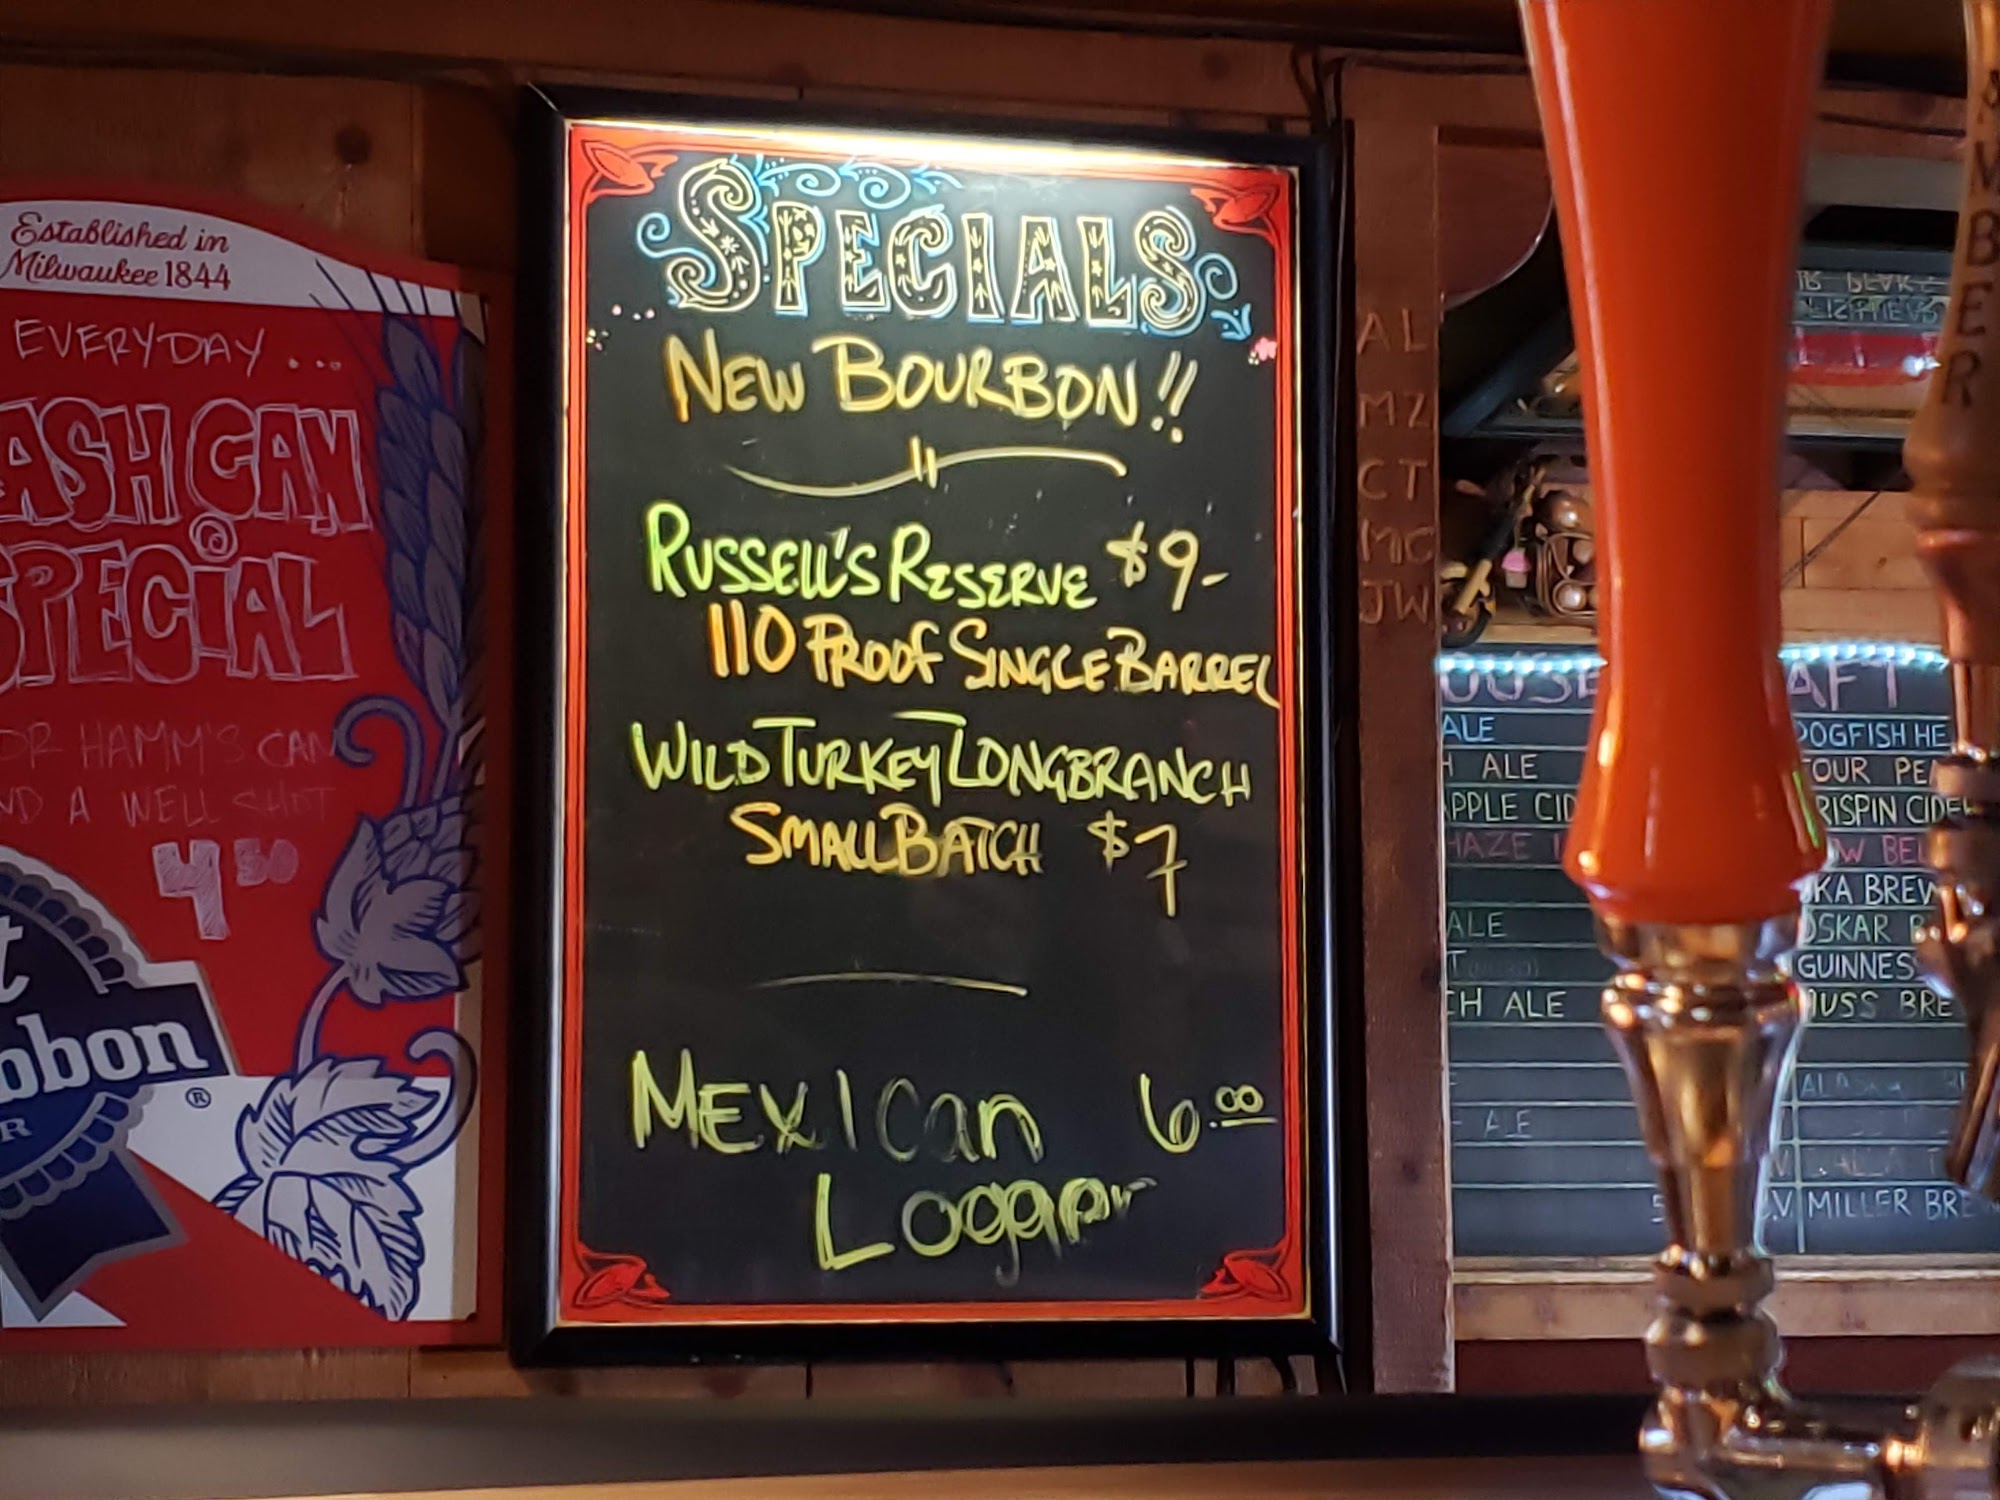 Established in
Milwaukee 1844
EVERYDAY...
ASH CAN
SPECIAL
OR HAMM'S CAN
ND A WELL SHOT
4 50
bbon
®
SPECIALS
NEW BOURBON!!
RUSSELL'S RESERVE $9-
110 PROOF SINGLE BARREL
WILD TURKEY LONGBRANCH
SMALL BATCH $7
MEXICan 6.00
Logger
AL
MZ
CT
MC
JW
AMBER
AFT
ALE
DOGFISH HE
H ALE
OUR PE
APPLE CID
RISPIN CIDER
HAZE
W BEL
KA BREW
ALE
OSKAR B
GUINNES
CH ALE
USS BRE
ALE
MILLER BRE